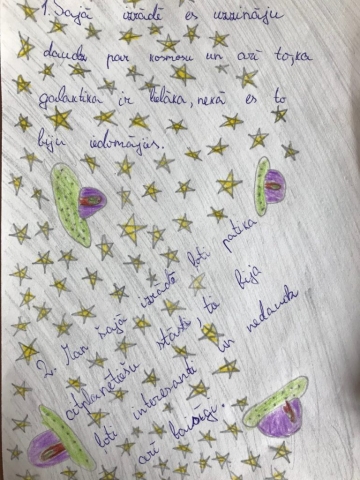 1. Šajā izrādē es uzzināju
daudz par kosmosu un arī to, ka
galaktika ir lielāka, nekā es to
biju iedomājus.
2. Man šajā izrādē ļoti patika
citplanētiešu stāsti to bija
ļoti interesanti un nedaudz
arī baisīgi.